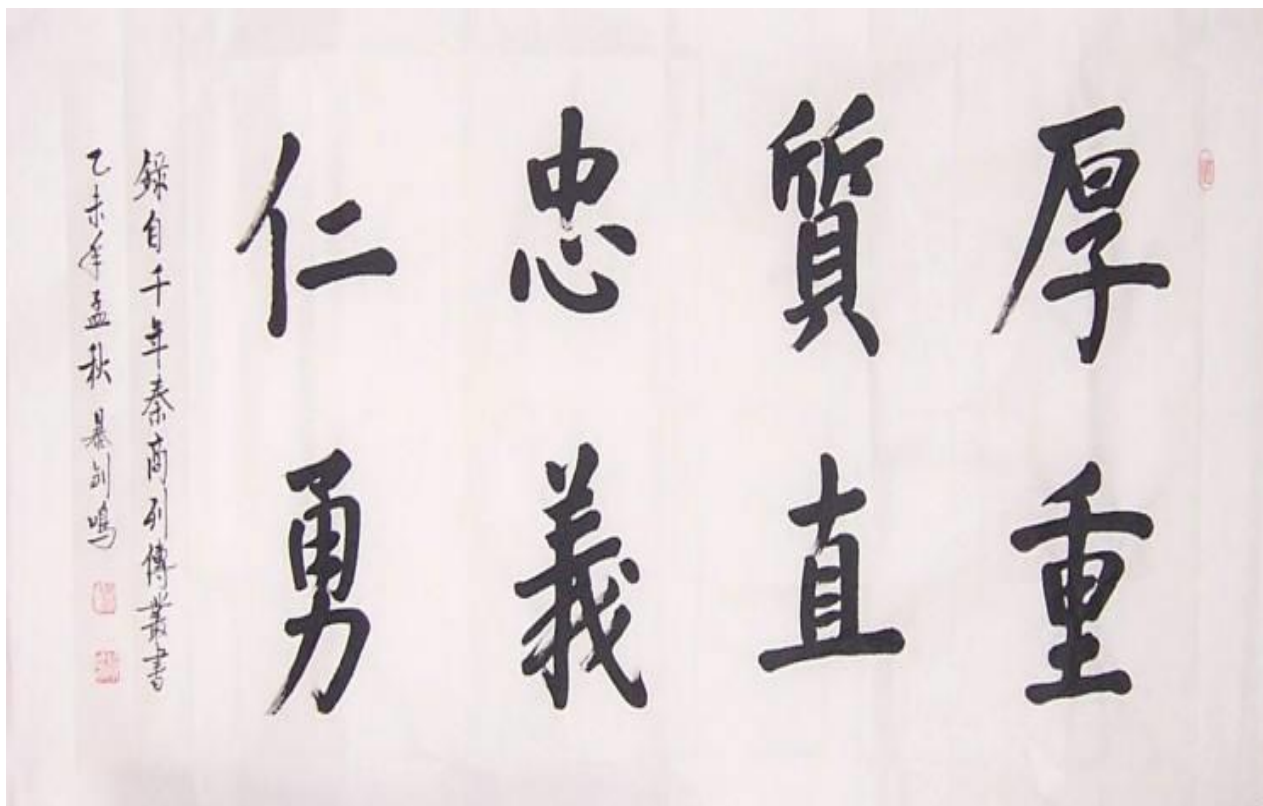 厚重
質直
忠義
仁勇
錄自千年秦商列傳叢書
乙未年孟秋 暴劍鳴